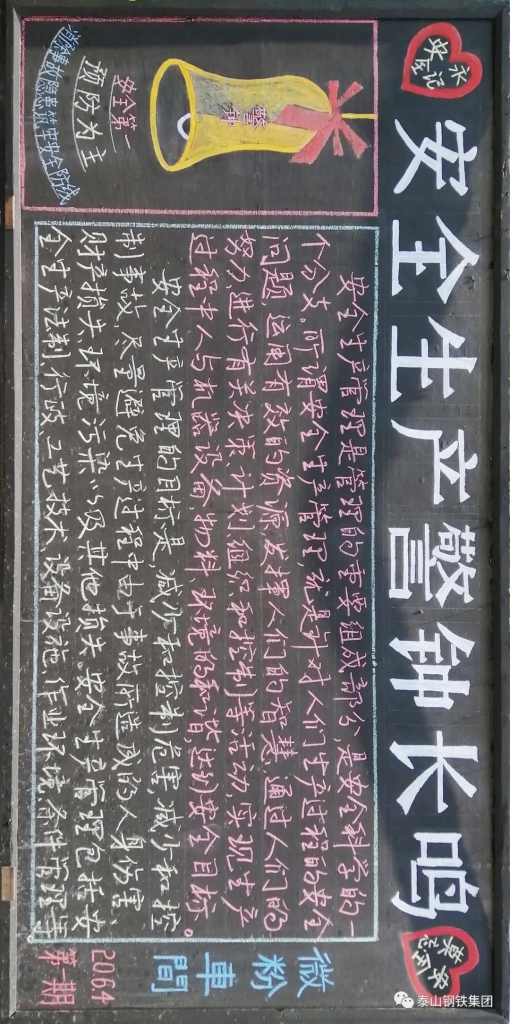 永记
安全
安全生产警钟长鸣
警钟
安全第一
预防为主
消除事故隐患筑牢安全防线
安全生产管理是管理的重要组成部分,是安全科学的一
个分支。所谓安全生产管理,就是针对人们生产过程的安全
问题,运用有效的资源,发挥人们的智慧,通过人们的
努力,进行有关决策、计划、组织和控制等活动,实现生产
过程中人与机器设备、物料、环境的和谐,达到安全目标。
安全生产管理的目标是,减少和控制危害,减少和控
制事故,尽量避免生产过程中由于事故所造成的人身伤害、
财产损失、环境污染以及其他损失。安全生产管理包括安
全生产法制、行政、工艺技术、设备设施、作业环境条件管理等
微粉車間
20.6.4
第一期
泰山钢铁集团